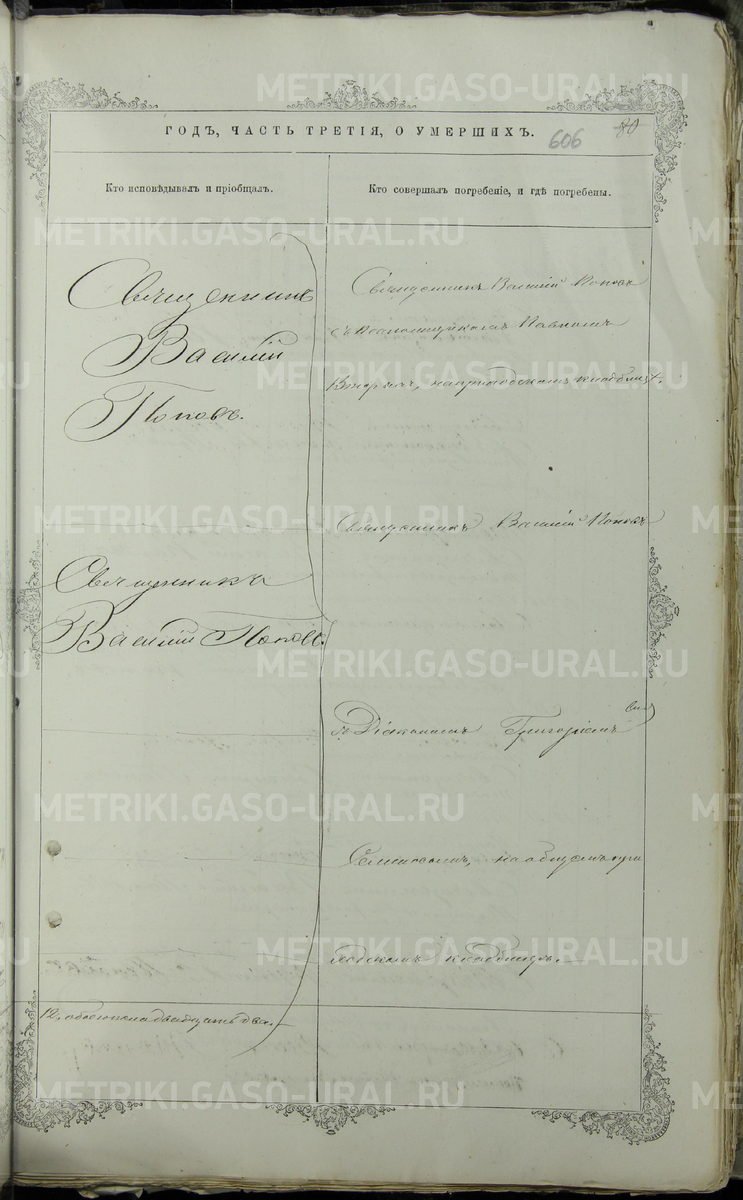 ГОДЪ, ЧАСТЬ ТРЕТІЯ, О УМЕРШИХЪ.
606
80
Кто исповѣдывалъ и пріобщалъ.
Кто совершалъ погребеніе, и гдѣ погребены.
Священникъ
Василій
Поповъ.
Священникъ
Василій Поповъ.
12, обоего пола двадцать два.
Священникъ Василій Поповъ
съ Павломъ
на приходскомъ кладбищѣ.
Священникъ Василій Поповъ
съ Діакономъ Григоріемъ
на общемъ при
ходскомъ кладбищѣ.
METRIKI.GASO-URAL.RU